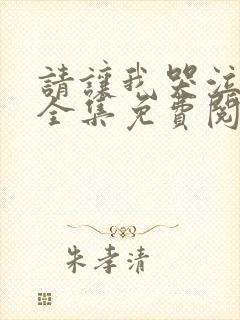 請讓我哭泣
全集免費閱
朱孝清